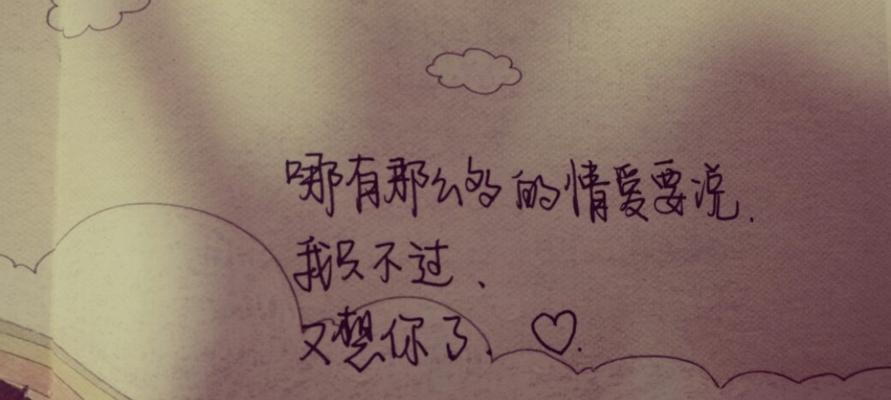 哪有那么多的情爱要说.
我只不过、
又想你了、♡.